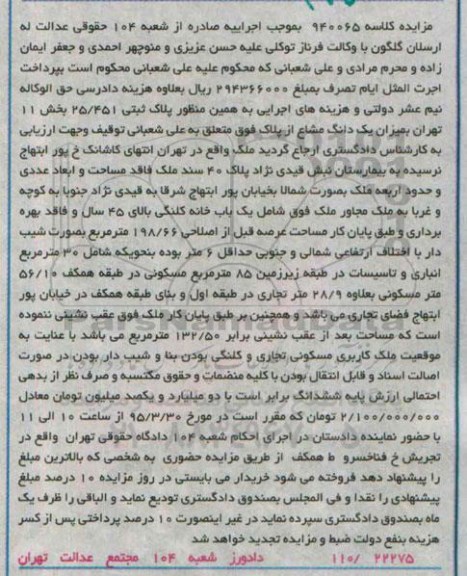 مزایده کلاسه ۹۴۰۰۶۵ بموجب اجراییه صادره از شعبه ۱۰۴ حقوقی عدالت له
ارسلان گلگون با وکالت فرناز توکلی علیه حسن عزیزی و منوچهر احمدی و جعفر ایمان
زاده و محرم مرادی و علی شعبانی که محکوم علیه علی شعبانی محکوم است بپرداخت
اجرت المثل ایام تصرف بمبلغ ۲۹۴۳۶۶۰۰۰ ریال بعلاوه هزینه دادرسی حق الوکاله
نیم عشر دولتی و هزینه های اجرایی به همین منظور پلاک ثبتی ۲۵/۴۵۱ بخش ۱۱
تهران بمیزان یک دانگ مشاع از پلاک فوق متعلق به علی شعبانی توقیف وجهت ارزیابی
به کارشناس دادگستری ارجاع گردید ملک واقع در تهران انتهای کاشانک خ پور ابتهاج
نرسیده به بیمارستان نبش قیدی نژاد پلاک ۴۰ سند ملک فاقد مساحت و ابعاد عددی
و حدود اربعه ملک بصورت شمالا بخیابان پور ابتهاج شرقا به قیدی نژاد جنوبا به کوچه
و غربا به ملک مجاور ملک فوق شامل یک باب خانه کلنگی بالای ۴۵ سال و فاقد بهره
برداری و طبق پایان کار مساحت عرصه قبل از اصلاحی ۱۹۸/۶۶ مترمربع بصورت شیب
دار با اختلاف ارتفاعی شمالی و جنوبی حداقل ۶ متر بوده بنحویکه شامل ۳۰ مترمربع
انباری و تاسیسات در طبقه زیرزمین ۸۵ مترمربع مسکونی در طبقه همکف ۵۶/۱۰
متر مسکونی بعلاوه ۲۸/۹ متر تجاری در طبقه اول و بنای طبقه همکف در خیابان پور
ابتهاج فضای تجاری می باشد و همچنین بر طبق پایان کار ملک فوق عقب نشینی ننموده
است که مساحت بعد از عقب نشینی برابر ۱۳۲/۵۰ مترمربع می باشد با عنایت به
موقعیت ملک کاربری مسکونی تجاری و کلنگی بودن بنا و شیب دار بودن در صورت
اصالت اسناد و قابل انتقال بودن با کلیه منضمات و حقوق مکتسبه و صرف نظر از بدهی
احتمالی ارزش پایه ششدانگ برابر است با دو میلیارد و یکصد میلیون تومان معادل
۲/۱۰۰/۰۰۰/۰۰۰ تومان که مقرر است در مورخ ۹۵/۳/۳۰ از ساعت ۱۰ الی ۱۱
با حضور نماینده دادستان در اجرای احکام شعبه ۱۰۴ دادگاه حقوقی تهران واقع در
تجریش خ فناخسرو ط همکف از طریق مزایده حضوری به شخصی که بالاترین مبلغ
را پیشنهاد دهد فروخته می شود خریدار می بایستی در روز مزایده ۱۰ درصد مبلغ
پیشنهادی را نقدا و فی المجلس بصندوق دادگستری تودیع نماید و الباقی را ظرف یک
ماه بصندوق دادگستری سپرده نماید در غیر اینصورت ۱۰ درصد پرداختی پس از کسر
هزینه بنفع دولت ضبط و مزایده تجدید خواهد شد
۱۱۰/ ۲۲۲۷۵ دادورز شعبه ۱۰۴ مجتمع عدالت تهران